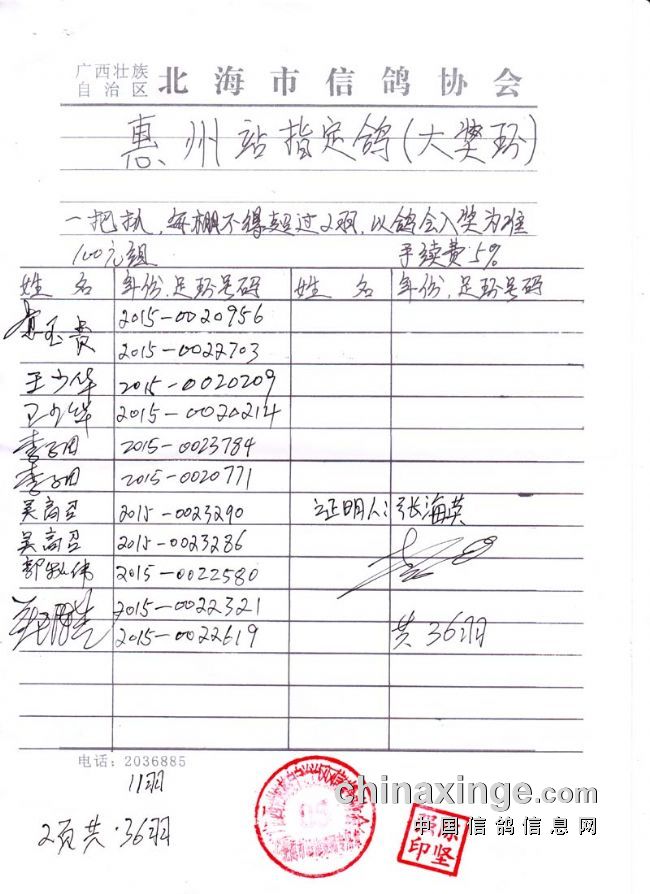 广西壮族
自治区 北海市信鸽协会
惠州站指定鸽(大奖环)
一把扒,每棚不得超过2羽,以鸽会入奖为准
100元组 手续费:5%
姓名 年份,足环号码 姓名 年份,足环号码
玉贵 2015-0020956
2015-0022703
王少华 2015-0020209
卫少华 2015-0020214
李 2015-0023784
李 2015-0020771
吴高召 2015-0023290 证明人:张海英
吴高召 2015-0023286
郭 伟 2015-0022580
2015-0022321
2015-0022619 共36羽
电话:2036885
11羽
2页共:36羽
chinaxinge.com
中国信鸽信息网